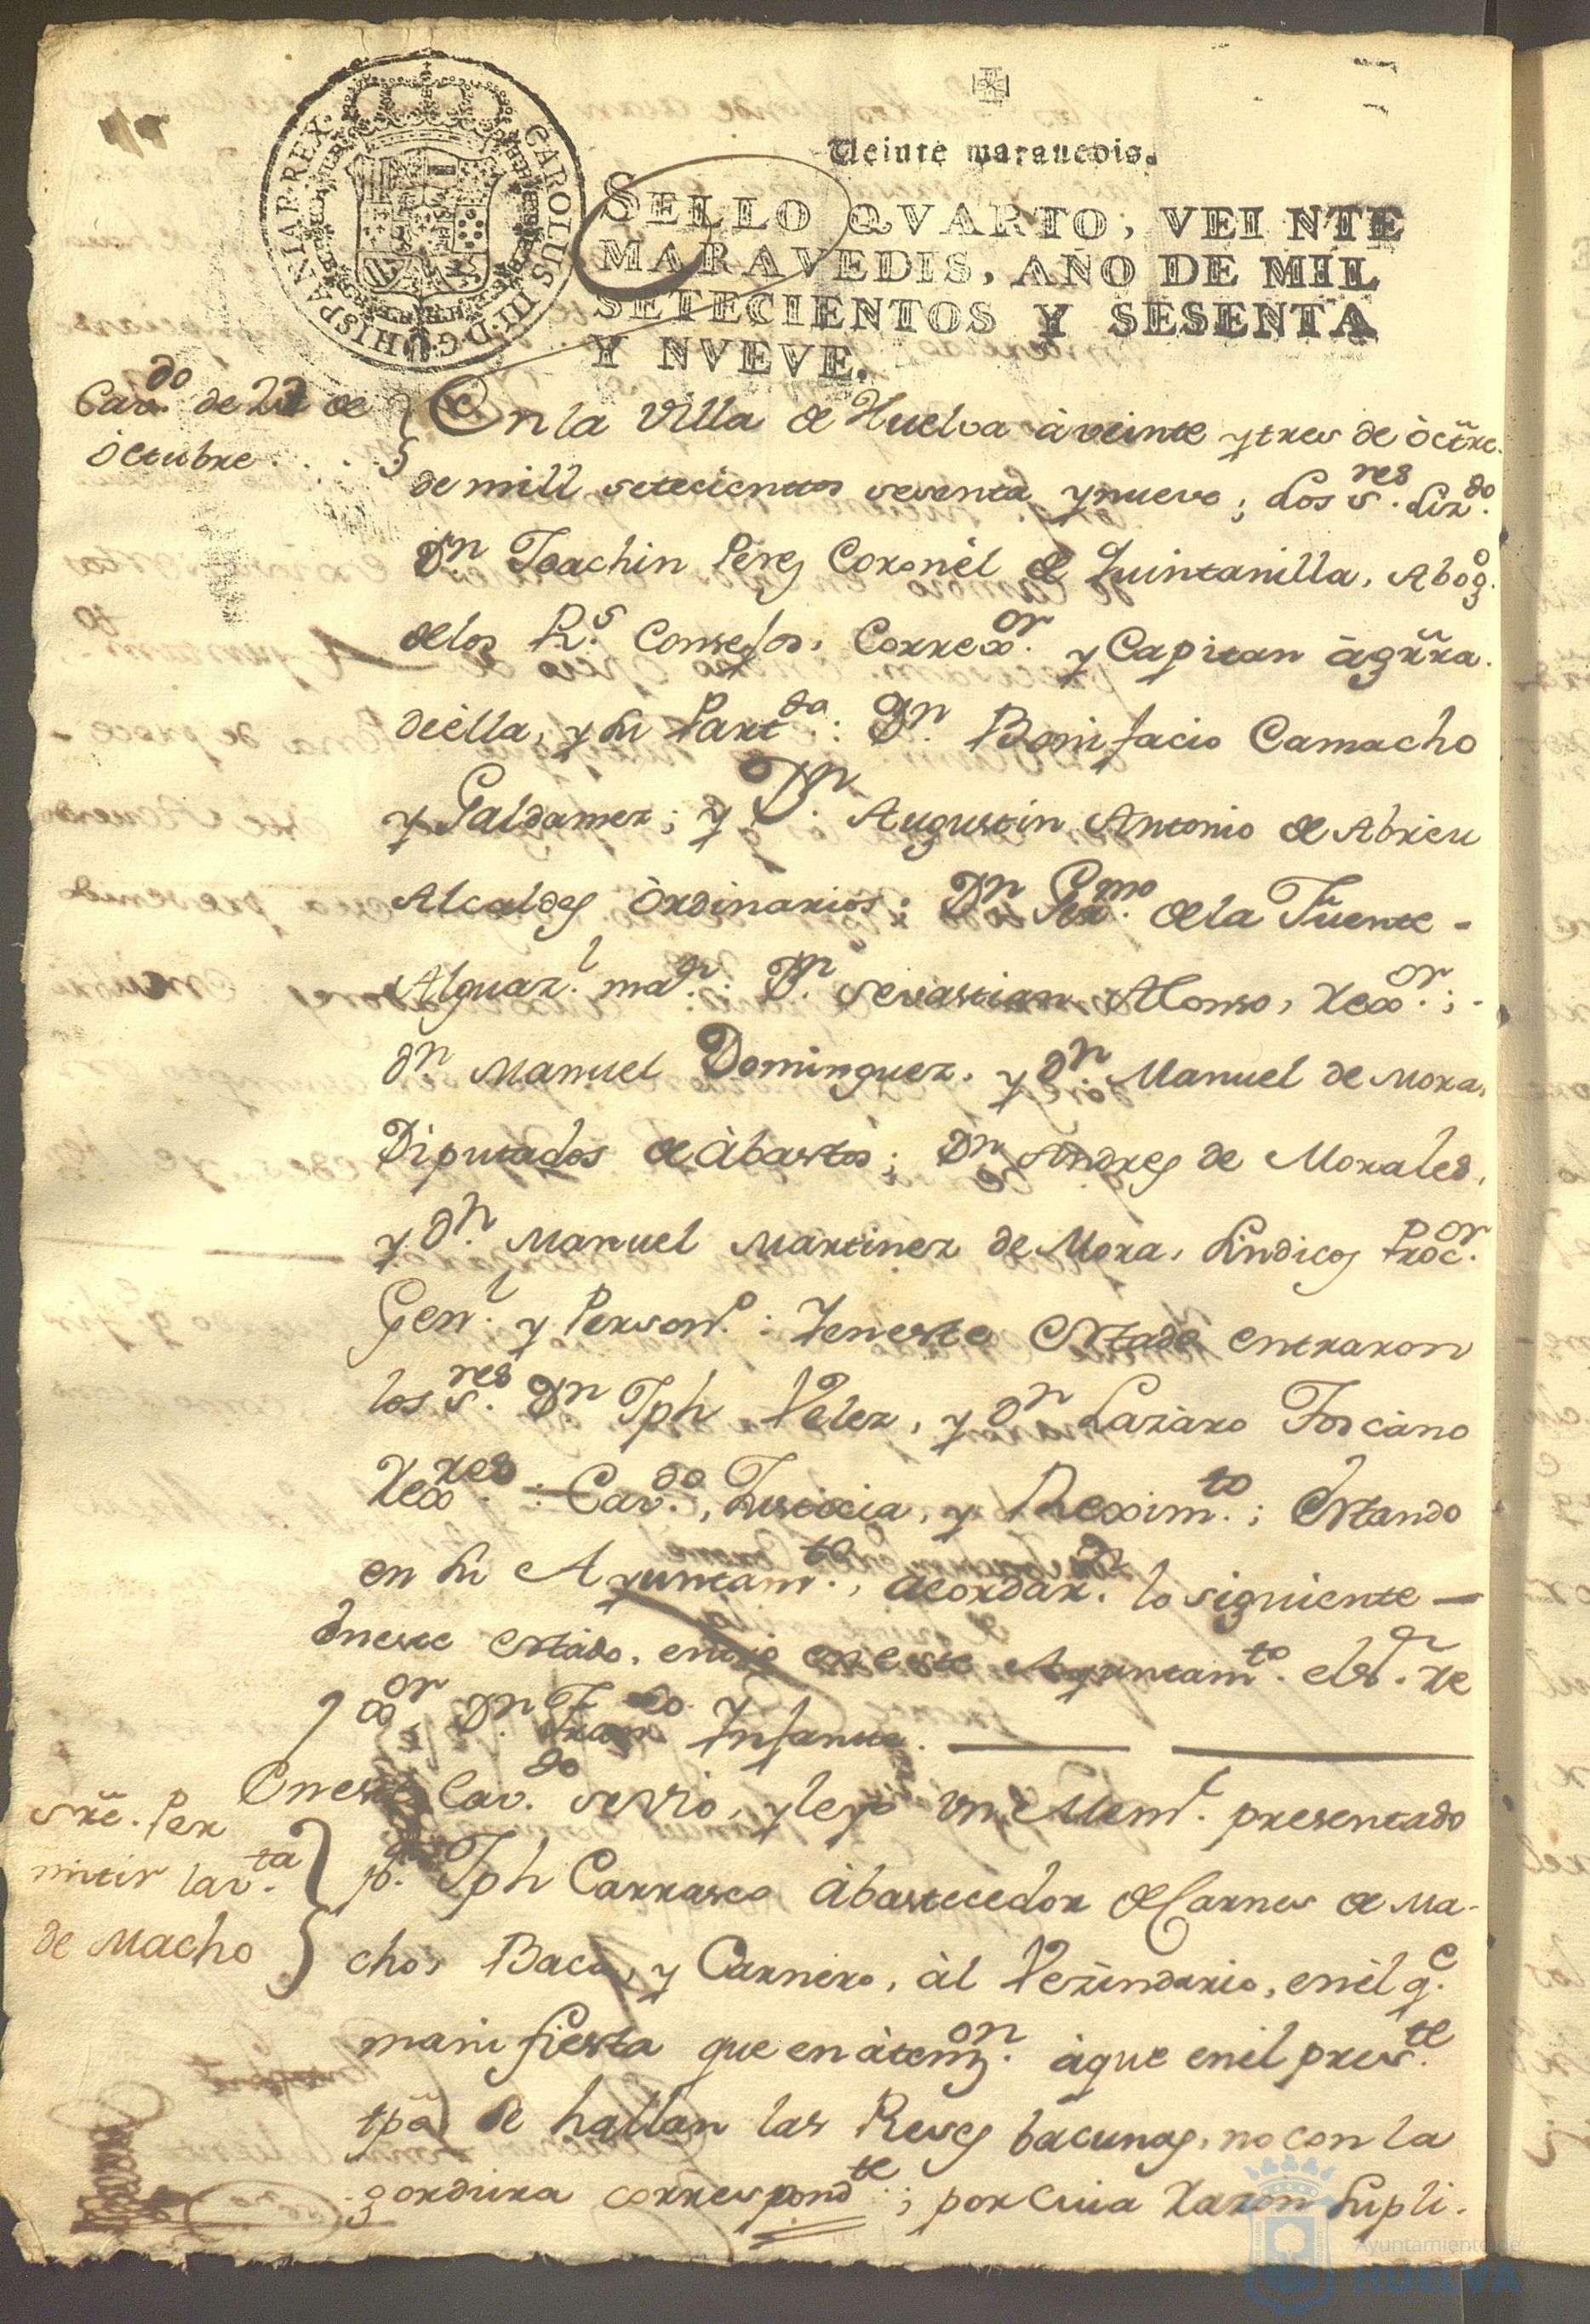 CAROLUS III D.G. HISPANIAR. REX.
Veinte marauedis.
SELLO QVARTO, VEINTE
MARAVEDIS, AÑO DE MIL
SETECIENTOS Y SESENTA
Y NVEVE.
Cav.do de 23 de
octubre....
En la Villa de Huelva à veinte y tres de òctre.
de mill setecientos sesenta y nueve; Los s.res Liz.do
D.n Joachin Perez Coronèl de Quintanilla, Abog.o
de los R.s Consejos, Correx.or y Capitan àgrra.
de ella, y su Part.da: D.n Bonifacio Camacho
y Galdamez; y D.n Augustin Antonio de Abrieu
Alcaldes òrdinarios: D.n Ger.mo de la Fuente -
Alguaz.l ma.r: D.n Sevastian Alonso, Rex.or; -
d.n Manuel Dominguez, y d.n Manuel de Mora,
Diputados de àbastos; D.n Andres de Morales,
y d.n Manuel Martinez de Mora, Sindicos Proc.or
Gen.l y Person.o: Y en este estado entraron
los s.res D.n Jph Velez, y d.n Lazàro Toscàno
Rex.res: Cav.do, Justicia, y Rexim.to; estando
en su Ayuntam.to, àcordar.n lo siguiente —
En este estado, entrò en este Ayuntam.to el s.r Re
xor D.n Fran.co Infante.
En este Cav.do se vio, y leyo vn Mem.l presentado
sre. Per
mitir la v.ta
de Macho
p.r Jph Carrasco àbastecedor de Carnes de Ma-
cho, Baca, y Carnero, àl Vezindario, en èl q.e
manifiesta que en àtenz.on à que en èl pres.te
tpo se hallan las Reses bacunas, no con la
gordura correspond.te; por cuia razon supli-
Ayuntamiento de
HUELVA